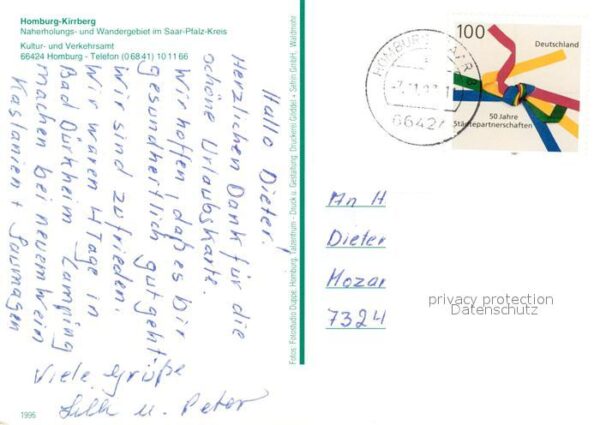 Homburg-Kirrberg
Naherholungs- und Wandergebiet im Saar-Pfalz-Kreis
Kultur- und Verkehrsamt
66424 Homburg - Telefon (0 68 41) 10 11 66
Hallo Dieter!
Herzlichen Dank für die
schöne Urlaubskarte.
Wir hoffen, daß es Dir
gesundheitlich gut geht.
Wir sind zufrieden.
Wir waren 4 Tage in
Bad Dürkheim Camping
machen bei neuem Wein
Kastanien + Saumagen
Viele Grüße
u. Peter
1996
Fotos: Fotostudio Duppe, Homburg, Druck u. Gestaltung: Druckerei
HOMBURG SAAR
66424
100
Deutschland
50 Jahre
Städtepartnerschaften
An H
Dieter
Mozar
7324
privacy protection
Datenschutz